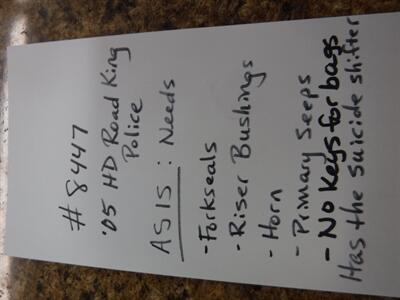 #8447
'05 HD Road King
Police
ASIS: Needs
- Forkseals
- Riser Bushings
- Horn
- Primary Seeps
- No keys for bags
Has the suicide shifter